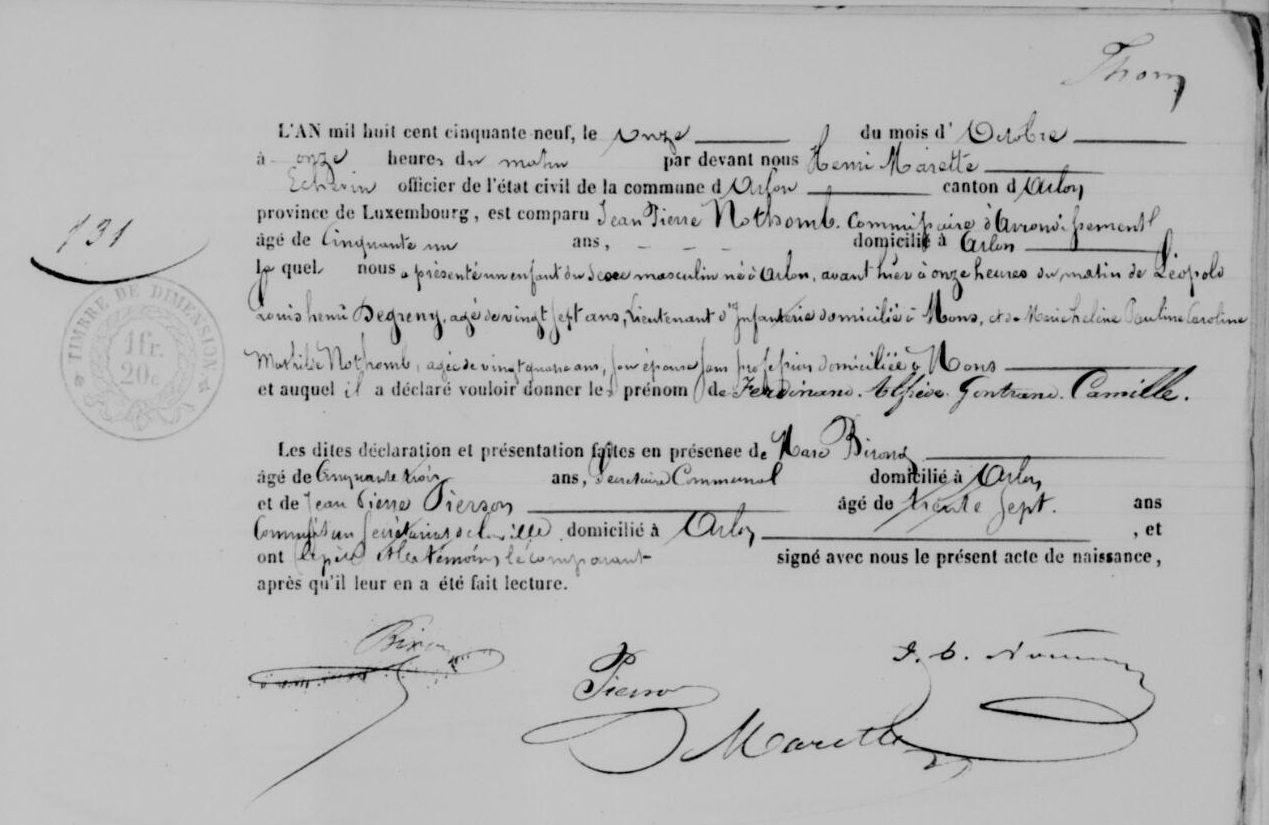 Thom
L'AN mil huit cent cinquante neuf, le onze du mois d'Octobre
à onze heures du matin par devant nous Henri Marette
Echevin officier de l'état civil de la commune d'Arlon canton d'Arlon
province de Luxembourg, est comparu Jean Pierre Nothomb. Commissaire d'Arrondissement
131
âgé de Cinquante un ans, domicilié à Arlon
le quel nous a présenté un enfant du sexe masculin né à Arlon, avant hier à onze heures du matin de Léopold
Louis henri Degreny, agé de vingt sept ans, Lieutenant d'Infanterie domicilié à Mons, et de Marie helène Pauline Caroline
Mathilde Nothomb, agée de vingt quatre ans, son épouse sans profession domiciliée à Mons
TIMBRE DE DIMENSION
1 fr.
20 c.
et auquel il a déclaré vouloir donner les prénom de Ferdinand. Alfred. Gontrand. Camille.
Les dites déclaration et présentation faites en présense de Marc Birond
âgé de Cinquante trois ans, Secretaire Communal domicilié à Arlon
et de Jean Pierre Pierson âgé de trente sept. ans
Commis au Secrétariat de la ville domicilié à Arlon, et
ont les témoins le comparant signé avec nous le présent acte de naissance,
après qu'il leur en a été fait lecture.
Pierson
Marette